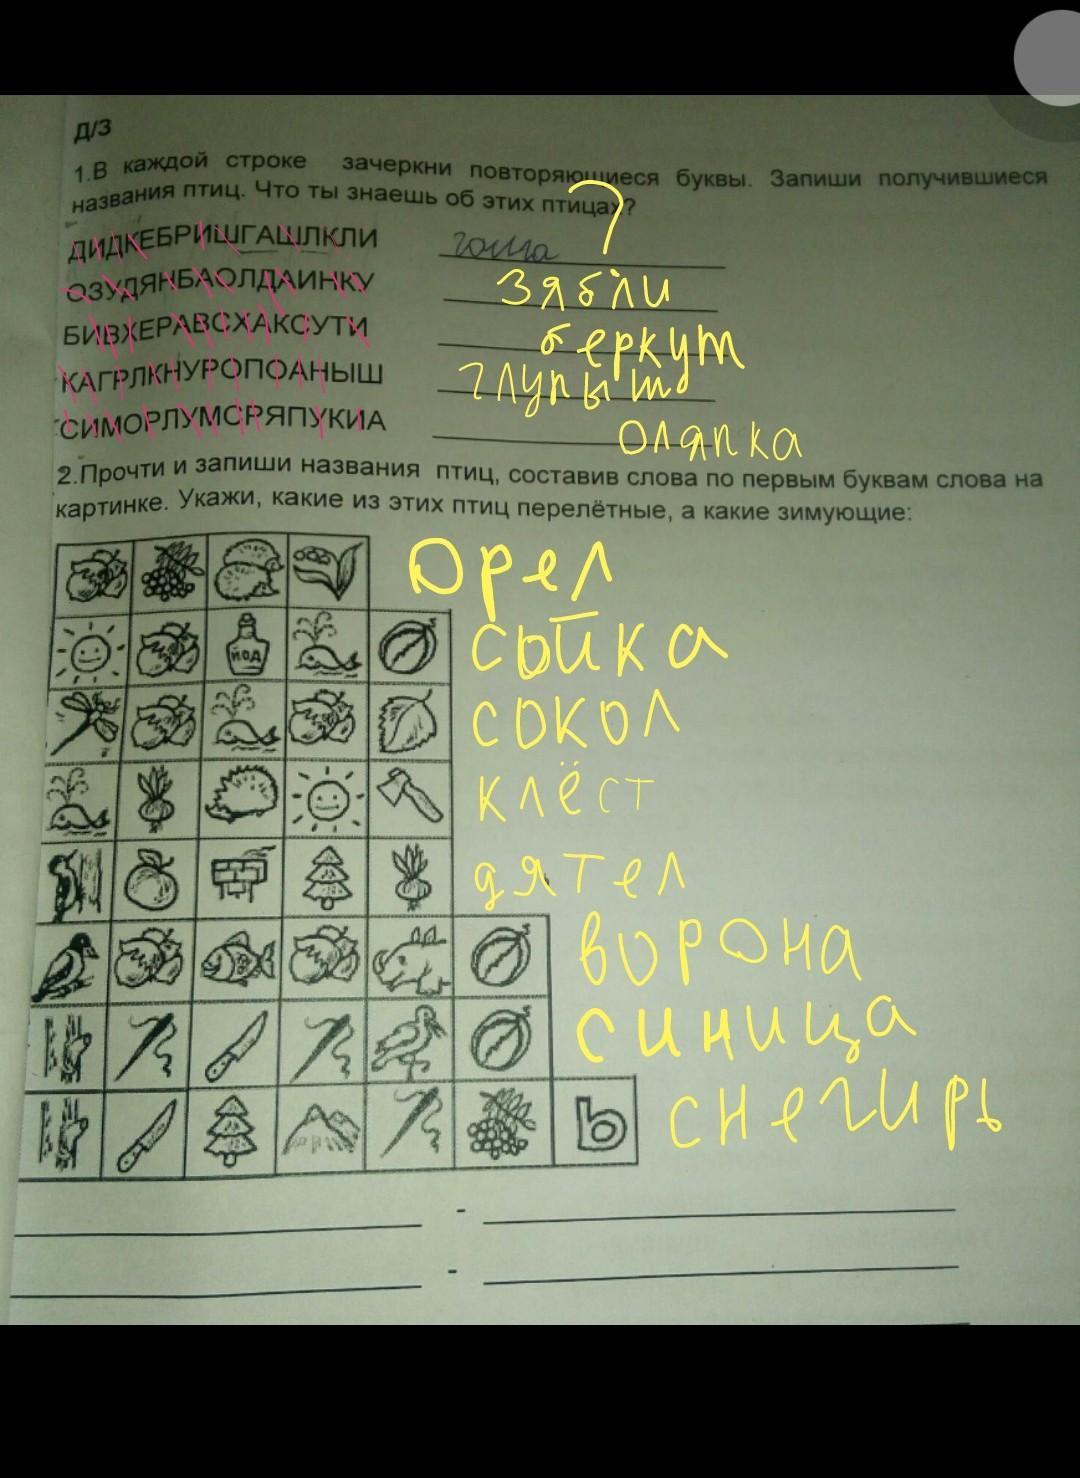 Д/З
1.В каждой строке зачеркни повторяющиеся буквы. Запиши получившиеся
названия птиц. Что ты знаешь об этих птицах?
?
ДИДКЕБРИШГАШЛКЛИ
ОЗУДЯНБАОЛДАИНКУ зябли
БИВХЕРАВСХАКСУТИ беркут
КАГРЛКНУРОПОАНЫШ глупыш
СИМОРЛУМСРЯПУКИА оляпка
2.Прочти и запиши названия птиц, составив слова по первым буквам слова на
картинке. Укажи, какие из этих птиц перелётные, а какие зимующие:
орел
йод
сойка
сокол
клёст
дятел
ворона
синица
Ь
снегирь